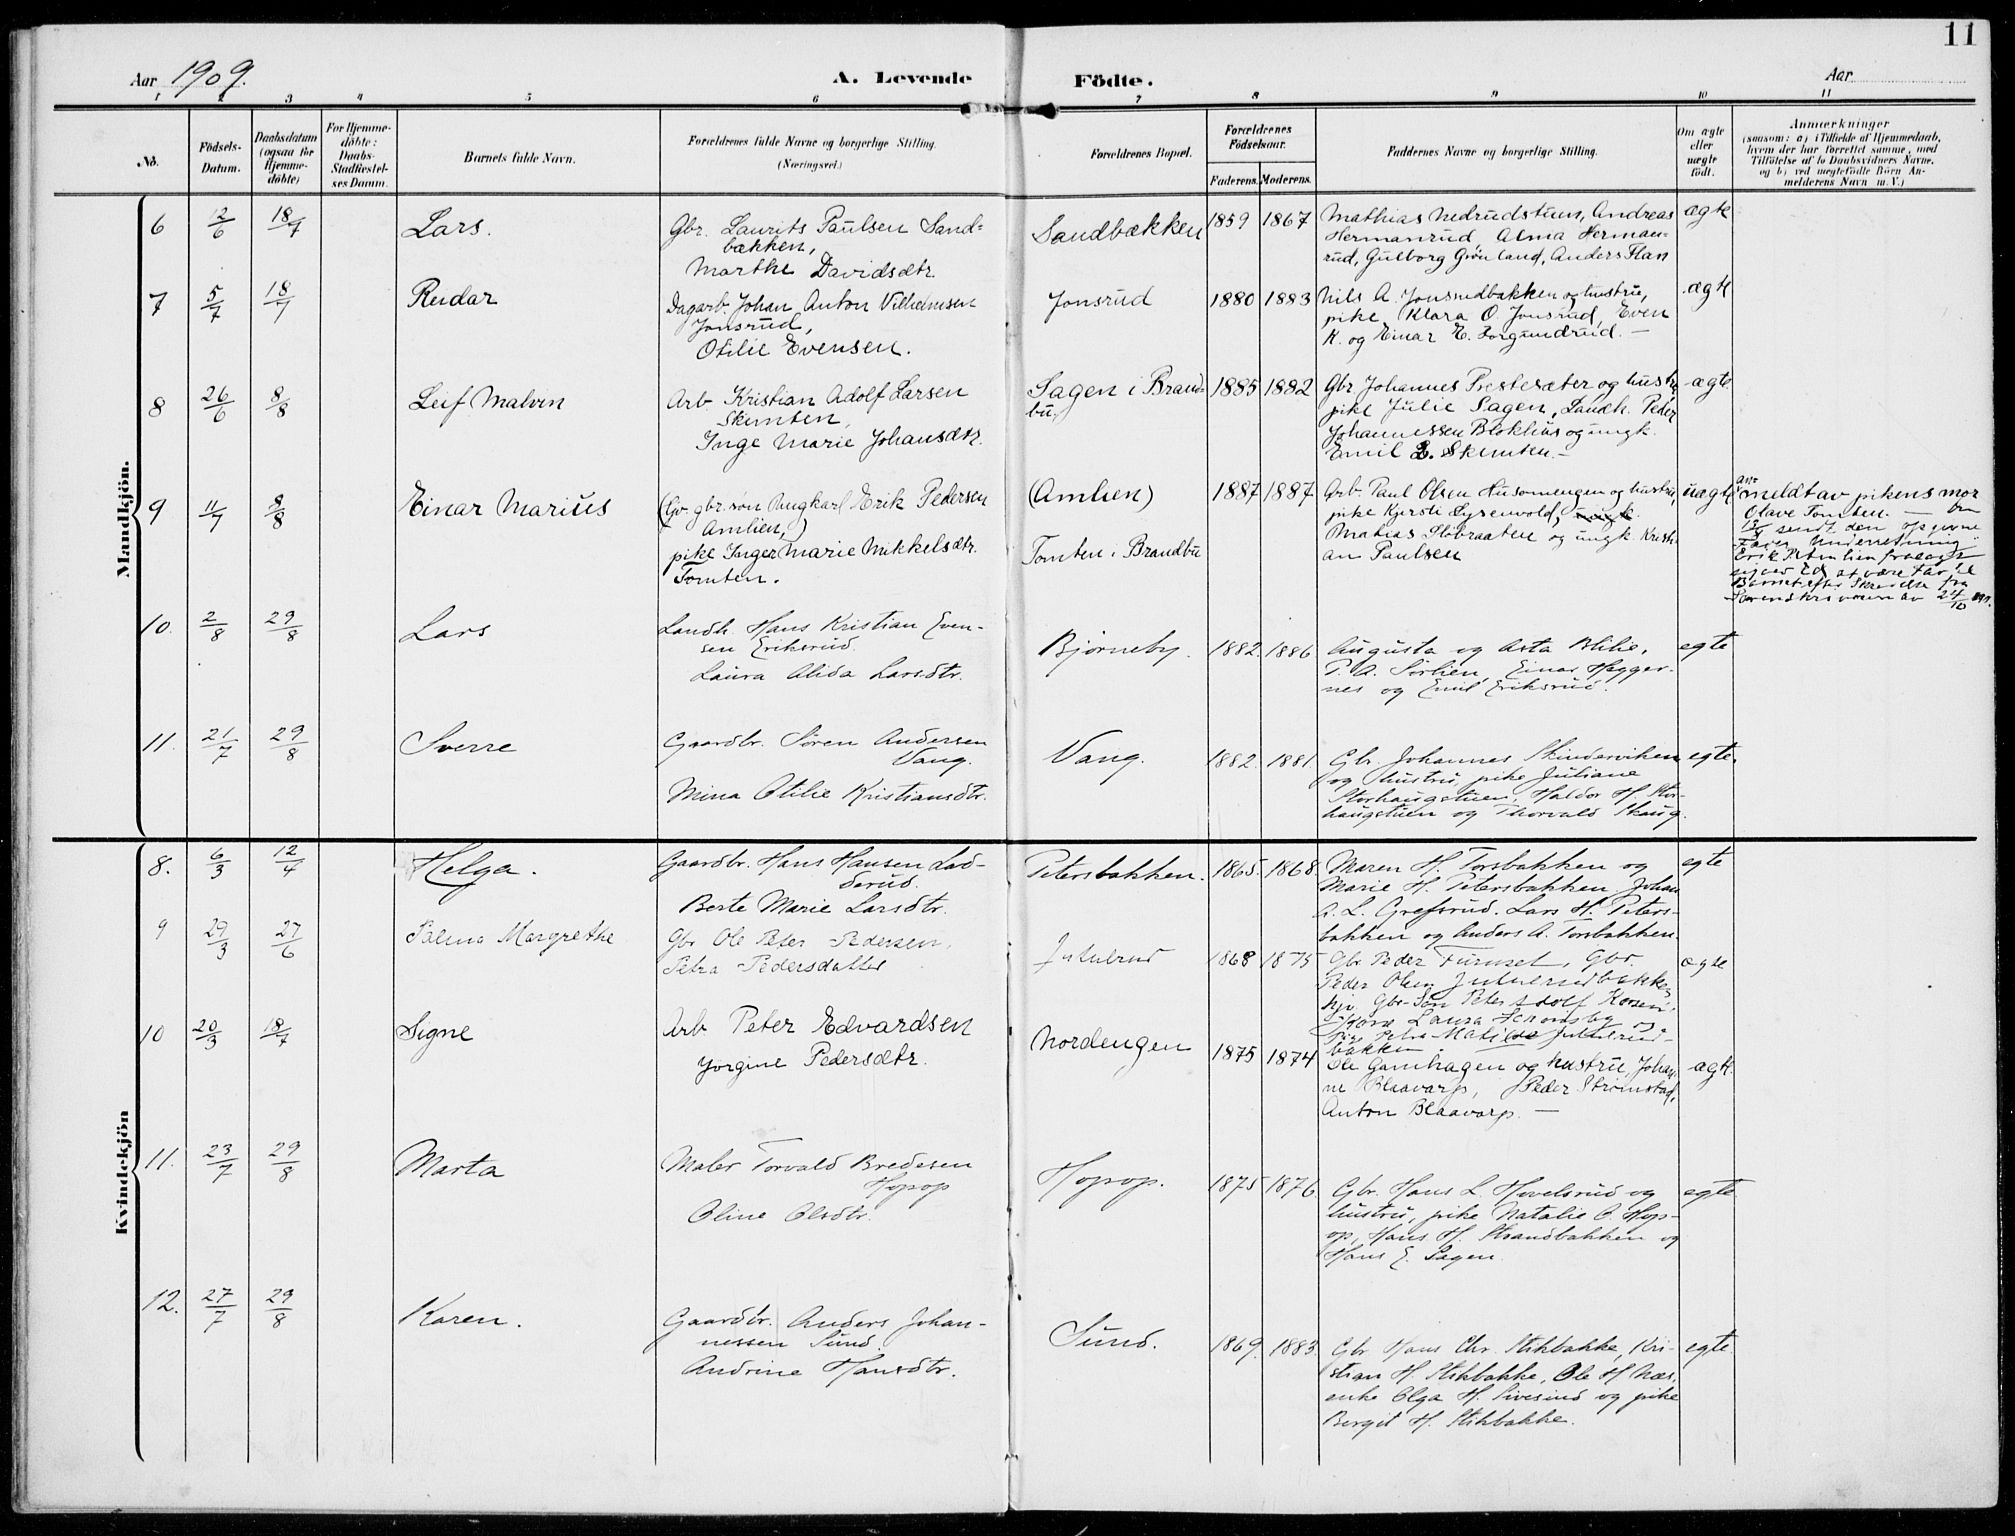 11
Aar 1909.
A. Levende Födte.
Aar
1 2 3 4 5 6 7 8 9 10 11
No.
Födsels-Datum.
Daabsdatum (ogsaa for Hjemmedöbte)
For Hjemmedöbte: Daabs-Stadfæstelses Datum.
Barnets fulde Navn.
Forældrenes fulde Navne og borgerlige Stilling. (Næringsvei.)
Forældrenes Bopæl.
Forældrenes Födselsaar.
Faderens. Moderens.
Faddernes Navne og borgerlige Stilling.
Om ægte eller uægte födt.
Anmærkninger
(saasom: a) i Tilfælde af Hjemmedaab,
hvem der har forrettet samme, med
Tilföielse af to Daabsvidners Navne,
og b) ved uægtefödte Börn An-
melderens Navn m. V.)
Mandkjön.
6 12/6 18/7 Lars. Gbr. Laurits Paulsen Sand=
bækken,
Marthe Davidsdtr.
Sandbækken 1859 1867 Mathias Nedrudstuen, Andreas ægte
Hermanrud, Alma Herman=
rud, Gulborg Grønland, Anders Flan
7 5/7 18/7 Reidar Dagarb. Johan Anton Vilhelmsen
Jonsrud,
Otilie Evensen.
Jonsrud 1880 1883 Nils A. Jonsrudbakken og hustru, ægte
pike Klara O. Jonsrud, Even
K. og Einar E. Borgundrud. —
8 26/6 8/8 Leif Malvin Arb. Kristian Adolf Larsen
Skimten,
Inge Marie Johansdtr.
Sagen i Brand=
bu. 1885 1882 Gbr. Johannes Prestesæter og hustru, ægte
pike Julie Sagen, Landh. Peder
Johannessen Blokhus og ungk.
Emil L. Skimten. —
9 11/7 8/8 Einar Marius (Gv. gbr. søn Ungkarl Erik Pedersen
Amlien,)
pike Inger Marie Mikkelsdtr.
Tomten.
(Amlien)
Tomten i Brandbu
1887 1887 Arb. Paul Olsen Husomengen og hustru, uægte
pike Kjersti Lysenvold,
Mathias Slobraaten og ungk. Kristi
an Paulsen
anmeldt av pikens mor
Olave Tomten. —
sendt den opgivne
Fader Underretning
10. 2/8 29/8 Lars Landh. Hans Kristian Even-
sen Eriksrud.
Laura Alida Larsdtr.
Bjørneby. 1882. 1886 Augusta og Asta Blilie, egte
P. A. Sørlien, Einar Hegger-
nes og Emil Eriksrud.
11. 21/7 29/8 Sverre Gaardbr. Søren Andersen
Vang.
Mina Otilie Kristiansdtr.
Vang. 1882. 1881. Gbr. Johannes Skinderviken egte.
og hustru, pike Juliane
Storhaugstuen, Haldor H. Stor-
haugstuen og Thorvald Skaug.
Kvindekjön
8. 6/3 12/4 Helga. Gaardbr. Hans Hansen Lad-
derud.
Berte Marie Larsdtr.
Petersbakken. 1865. 1868. Maren H. Torsbakken og egte
Marie H. Petersbakken, Johan
A. L. Grefsrud. Lars H. Peters-
bakken og Anders A. Torsbakken.
9 29/3 27/6 Palma Margrethe Gbr. Ole Peter Pedersen,
Petra Pedersdatter
Jutulrud 1868 1875 Gbr. Peder Furuset, Gbr. ægte
Peder Olsen Jutulrudbakken,
Gbr-Søn Peter Adolf Korsen,
Laura
Petra Matilde Jutulrud-
bakken.
10 20/3 18/7 Signe Arb. Peter Edvardsen
Jørgine Pedersdtr.
Nordengen 1875 1874 Ole Gamhagen og hustru, Johan- ægte.
ne Blaavarp, Peder Strømstad,
Anton Blaavarp. —
11. 23/7 29/8 Marta Maler Torvald Bredesen
Hopop
Oline Olsdtr.
Hopop. 1875 1876. Gbr. Hans L. Hovelsrud og egte
hustru, pike Natalie O. Hop-
op, Hans H. Strandbakken og
Hans E. Sagen.
12. 27/7 29/8 Karen. Gaardbr. Anders Johan-
nessen Sund.
Andrine Hansdtr.
Sund. 1869. 1883. Gbr. Hans Chr. Stikbakke, Kri- egte
stian H. Stikbakke, Ole H. Næs,
enke Olga H. Sivesind og pike
Bergit H. Stikbakke.